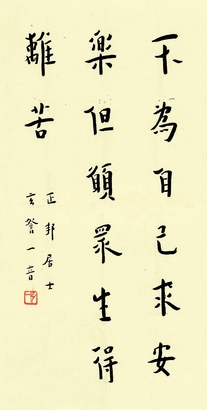 不為自己求安
樂但願眾生得
離苦
正邦居士
玄謦一音